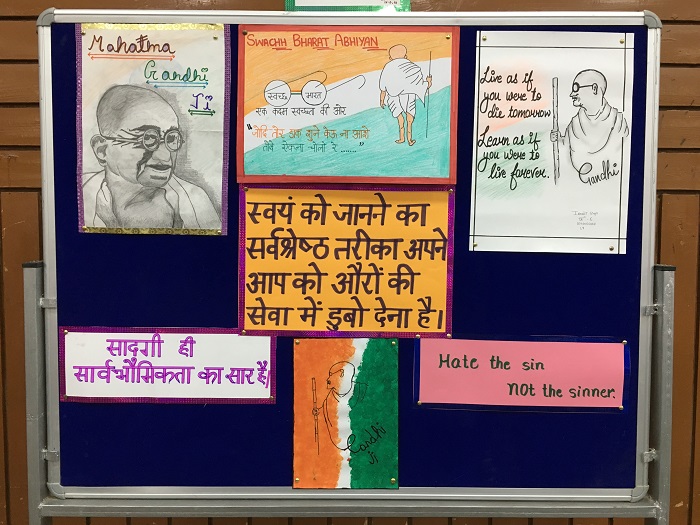 Mahatma
Gandhi
Ji
SWACHH BHARAT ABHIYAN
स्वच्छ भारत
एक कदम स्वच्छता की ओर
Live as if
you were to
die tomorrow
Learn as if
you were to
live forever.
Gandhi
स्वयं को जानने का
सर्वश्रेष्ठ तरीका अपने
आप को औरों की
सेवा में डुबो देना है।
सादगी ही
सार्वभौमिकता का सार है।
Gandhi
Ji
Hate the sin
NOT the sinner.